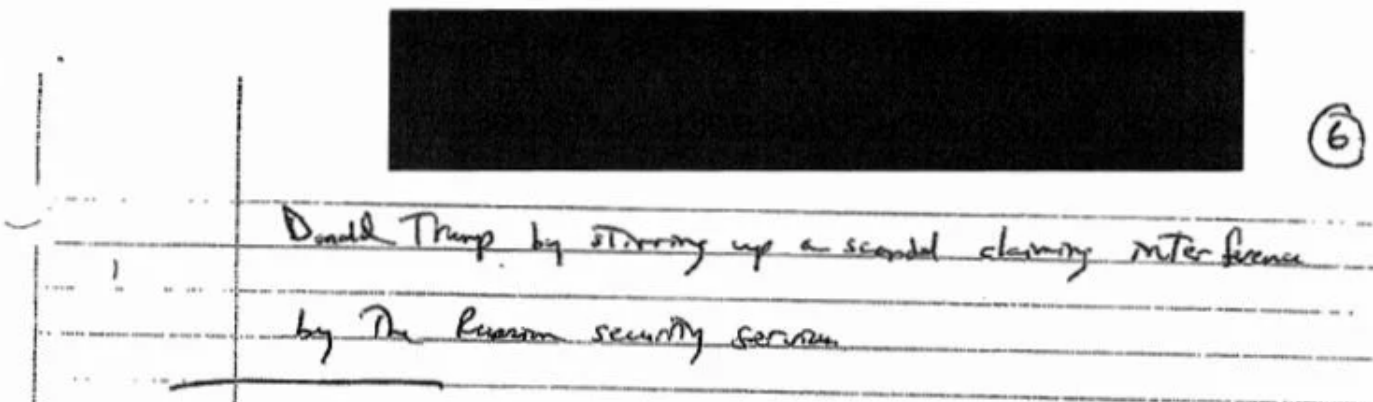 6
Donald Trump by stirring up a scandal claiming interference
by the Russian security services